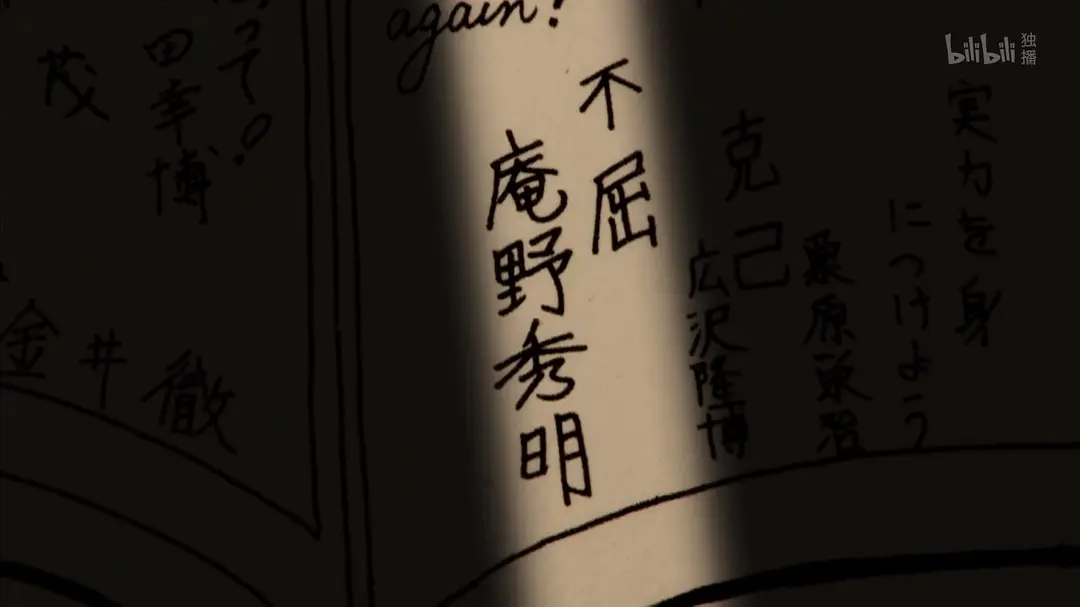 bilibili 独播
実力を身
につけよう
克己
広沢隆博
不屈
庵野秀明
again!
って!
田幸博
茂
金井徹